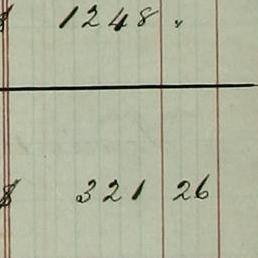 $ 1248 "
$ 321 26